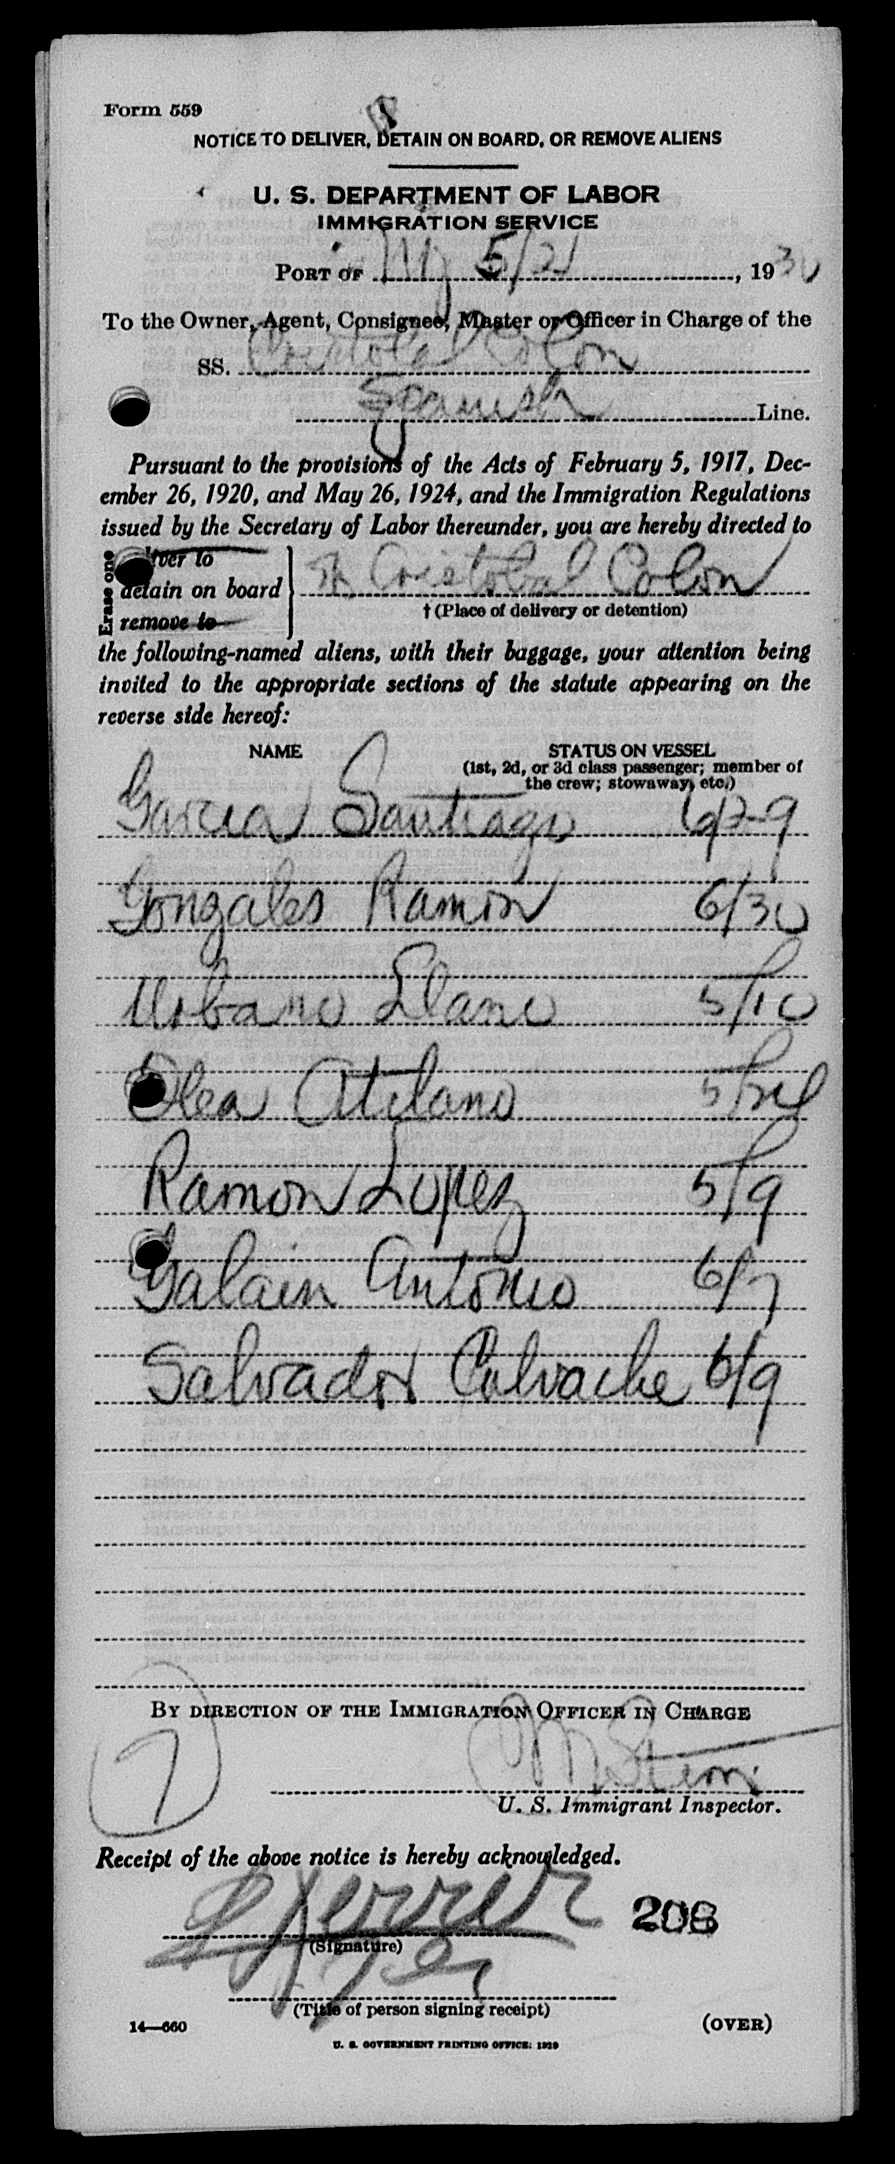 Form 559
NOTICE TO DELIVER, DETAIN ON BOARD, OR REMOVE ALIENS
U. S. DEPARTMENT OF LABOR
IMMIGRATION SERVICE
PORT OF NY 5/21, 1930
To the Owner, Agent, Consignee, Master or Officer in Charge of the
SS. Cristobal Colon
Spanish Line.
Pursuant to the provisions of the Acts of February 5, 1917, Dec-
ember 26, 1920, and May 26, 1924, and the Immigration Regulations
issued by the Secretary of Labor thereunder, you are hereby directed to
Erase one
liver to
detain on board
remove to
Cristobal Colon
† (Place of delivery or detention)
the following-named aliens, with their baggage, your attention being
invited to the appropriate sections of the statute appearing on the
reverse side hereof:
NAME STATUS ON VESSEL
(1st, 2d, or 3d class passenger; member of
the crew; stowaway, etc.)
Garcia Santiago 6/29
Gonzales Ramon 6/30
Urbano Llano 5/10
Olea Atilano
Ramon Lopez 5/9
Galain Antonio 6/7
Salvador Calvache 6/9
BY DIRECTION OF THE IMMIGRATION OFFICER IN CHARGE
7
U. S. Immigrant Inspector.
Receipt of the above notice is hereby acknowledged.
Ferrer 208
(Signature)
(Title of person signing receipt)
14—660 (OVER)
U. S. GOVERNMENT PRINTING OFFICE: 1929